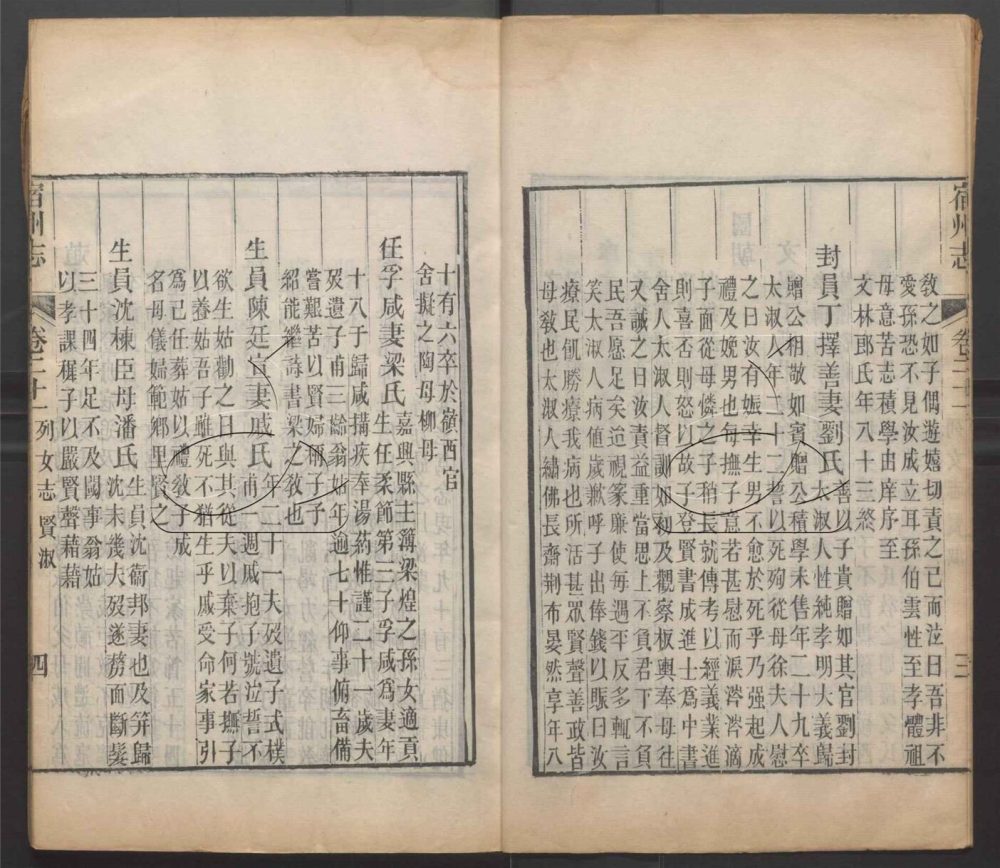 宿州志
卷二十一
三
教之如子偶遊嬉切責之已而泣曰吾非不
愛孫恐不見汝成立耳孫伯雲性至孝體祖
母意苦志積學由庠序至
文林郎氏年八十三終
封員丁擇善妻劉氏
善以子貴贈如其官劉封
太淑人性純孝明大義歸
贈公相敬如賓贈公積學未售年二十九卒
太淑人年二十二誓以死殉從母徐夫人慰
之曰汝有娠幸生男不愈於死乎乃强起成
禮及娩男也每撫子意若甚慰而淚涔涔滴
子面從母憐之子稍長就傅考以經義業進
則喜否則怒以故子登賢書成進士爲中書
舍人太淑人訓如初及觀察板輿奉母往
又誡之曰汝責益重當思上不負君下不負
民吾愿足矣迨視篆廉使每遇平反多輒言
笑太淑人病値歲歉呼子出俸錢以賑曰汝
療民飢勝療我病也所活甚眾賢聲善政皆
母教也太淑人繡佛長齋荆布晏然享年八
十有六卒於嶺西官
舍擬之陶母柳母
任孚咸妻梁氏
嘉興縣主簿梁煌之孫女適貢
生任柔節第三子孚咸爲妻年
十八于歸咸搆疾奉湯葯惟謹二十一歲夫
歿遺子甫三齡翁姑年逾七十仰事俯畜備
嘗艱苦以賢婦稱子子
紹能繼詩書梁之敎也
生員陳廷宣妻戚氏
年二十一夫歿遺子式樸
甫一週戚抱子號泣誓不
欲生姑勸之曰與其從夫以棄子何若撫子
以養姑吾子雖死不猶生乎戚受命家事引
爲己任葬姑以禮敎子成
名母儀婦範鄉里賢之
生員沈棟臣母潘氏
生員沈衞邦妻也及笄歸
沈未幾夫歿遂剺面斷髮
三十四年足不及閾事翁姑
以孝課穉子以嚴賢聲藉藉
宿州志
卷二十一
列女志
賢淑
四